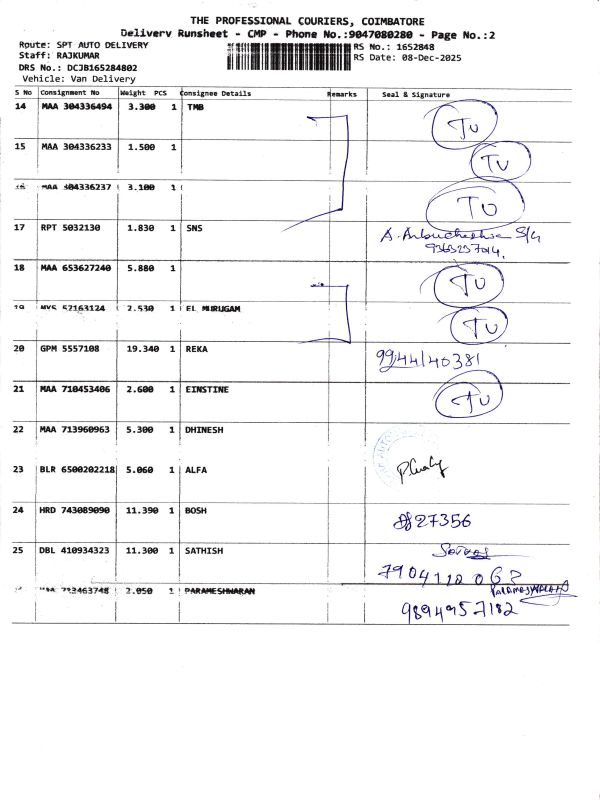 THE PROFESSIONAL COURIERS, COIMBATORE
Delivery Runsheet - CMP - Phone No.:9047080280 - Page No.:2
Route: SPT AUTO DELIVERY
RS No.: 1652848
Staff: RAJKUMAR
RS Date: 08-Dec-2025
DRS No.: DCJB165284802
Vehicle: Van Delivery
S No Consignment No Weight PCS Consignee Details Remarks Seal & Signature
14 MAA 304336494 3.300 1 TMB TU
15 MAA 304336233 1.500 1 TU
16 MAA 304336237 3.100 1 TU
17 RPT 5032130 1.830 1 SNS
18 MAA 653627240 5.880 1 TU
19 57163124 2.530 1 EL MURUGAM TU
20 GPM 5557108 19.340 1 REKA 99/44/40381
21 MAA 710453406 2.600 1 EINSTINE TU
22 MAA 713960963 5.300 1 DHINESH
23 BLR 6500202218 5.060 1 ALFA
24 HRD 743089090 11.390 1 BOSH 27356
25 DBL 410934323 11.300 1 SATHISH
2.050 1 PARAMESHWARAN
9894957182